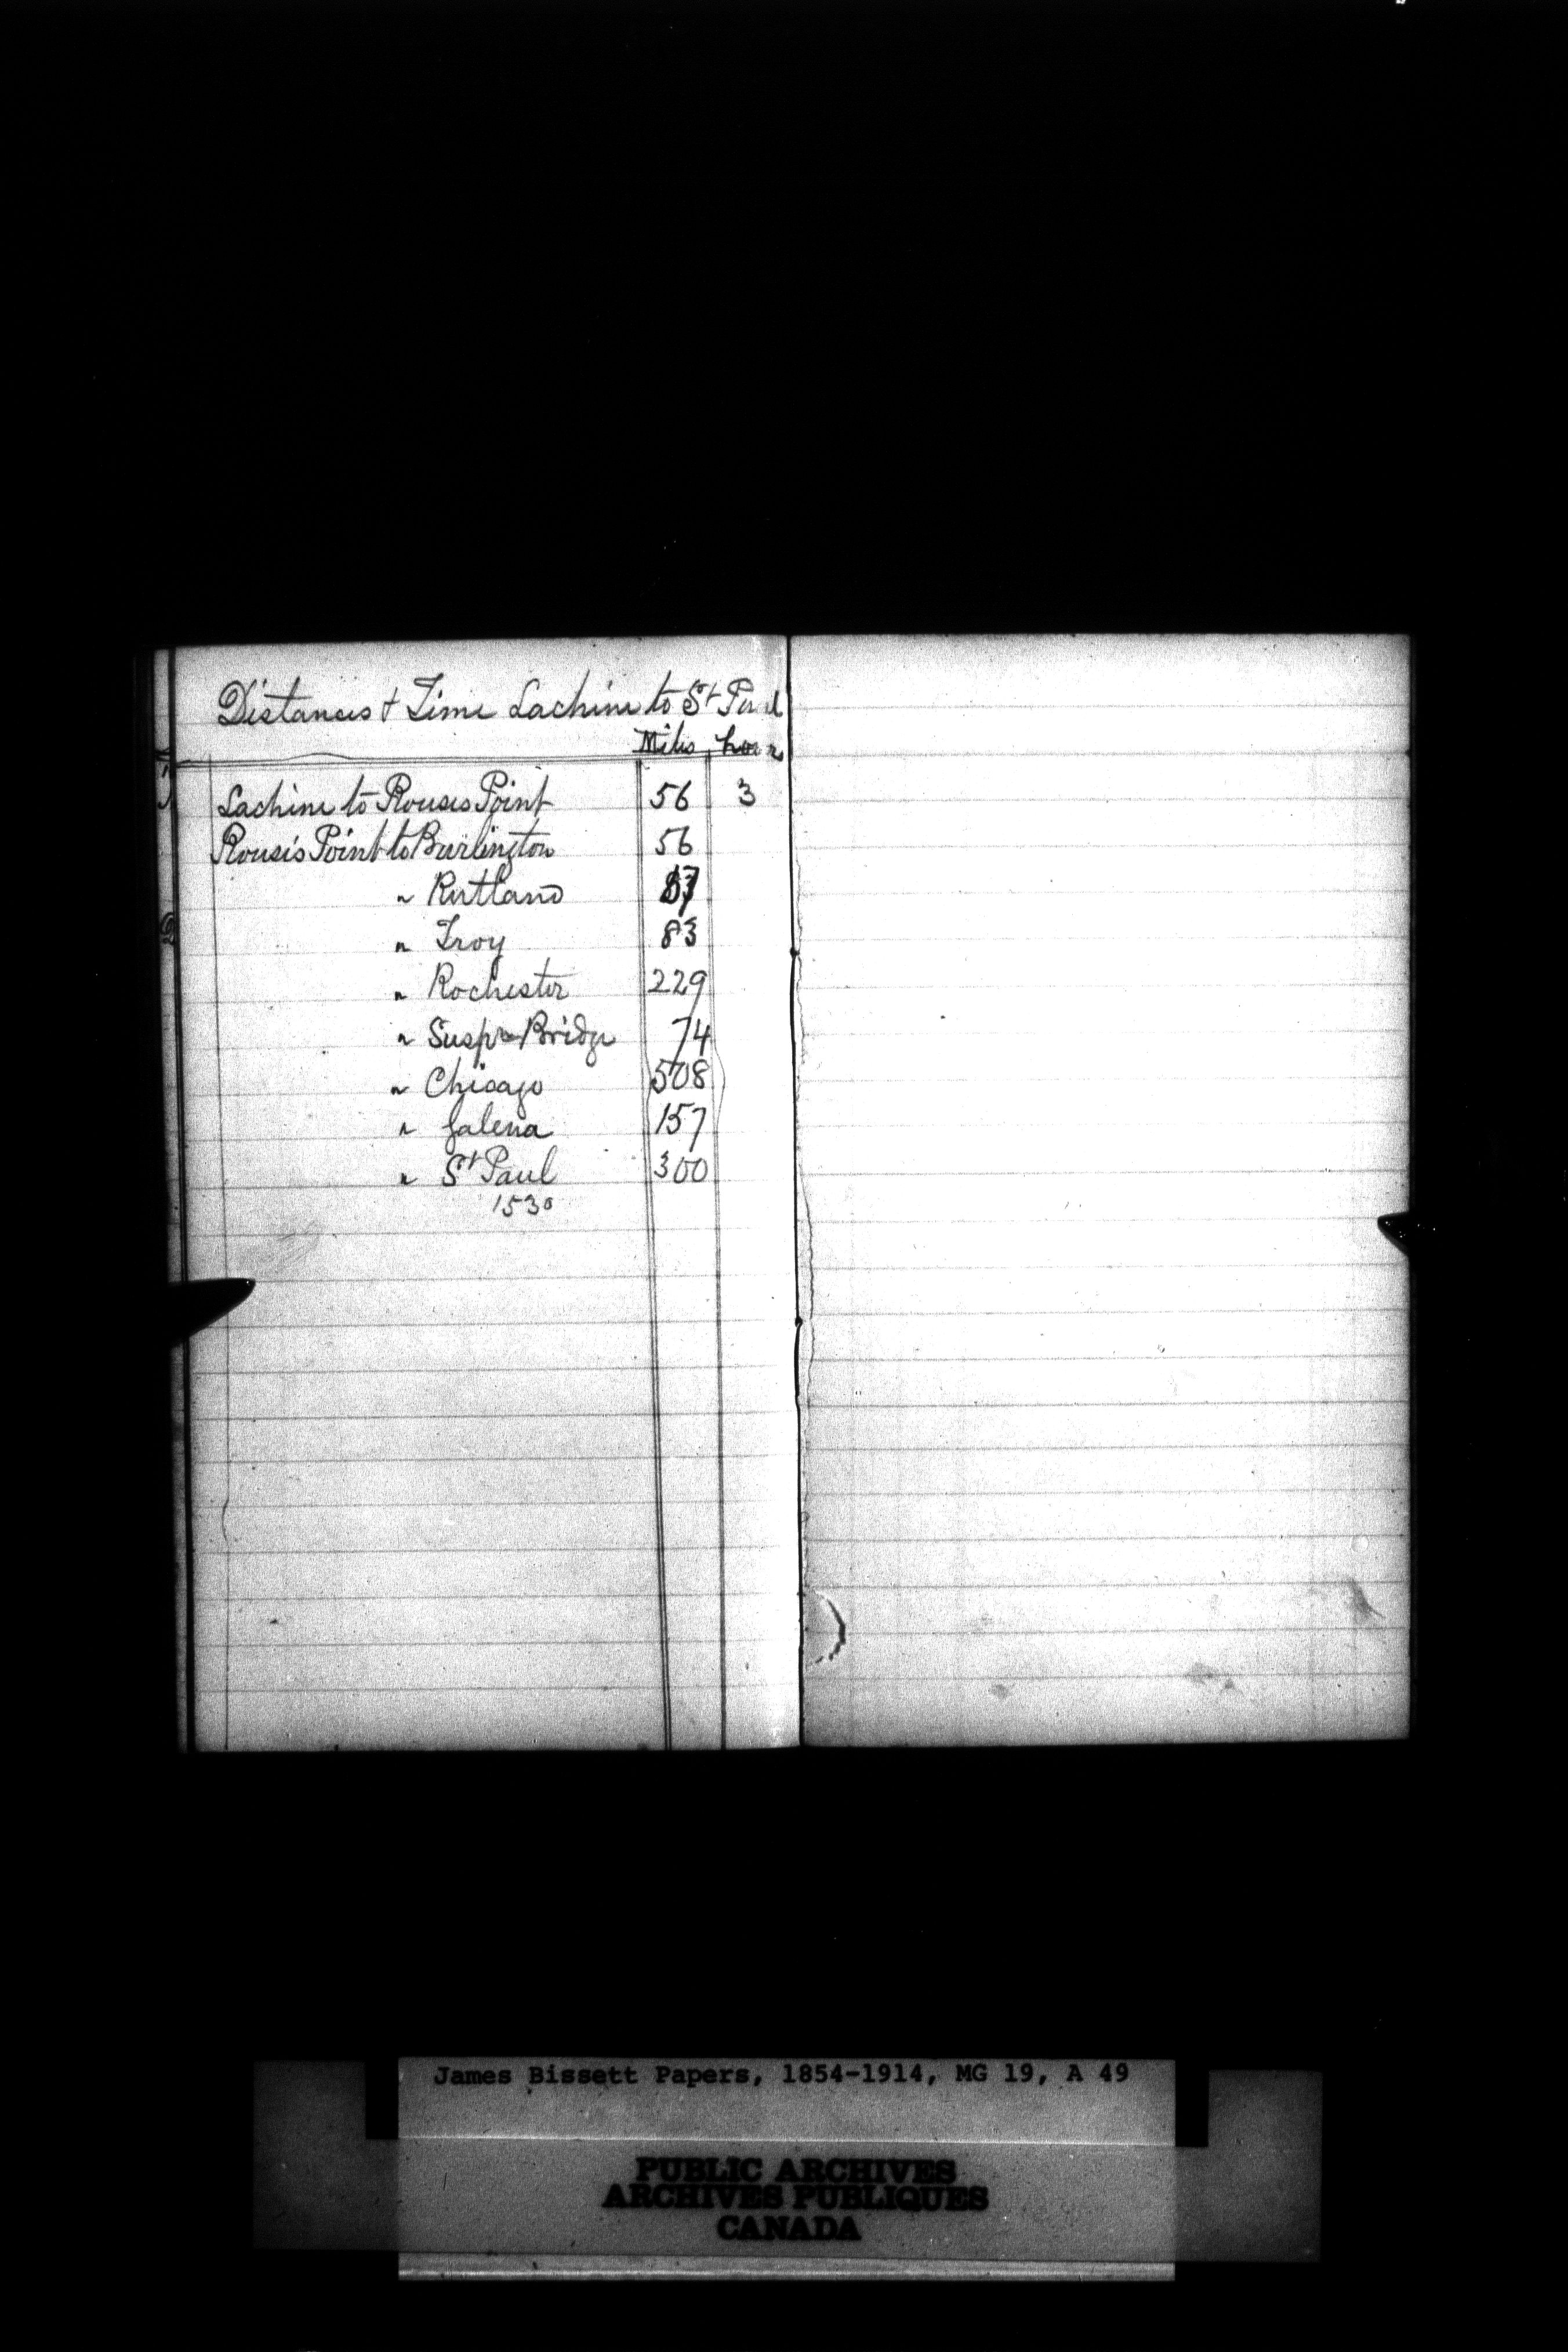 Distances & Time Lachine to St Paul
Miles hour
Lachine to Rouses Point 56 3
Rouses Point to Burlington 56
" Rutland 67
" Troy 83
" Rochester 229
" Susp Bridge 74
" Chicago 508
" Galena 157
" St Paul 300
1530
James Bissett Papers, 1854-1914, MG 19, A 49
PUBLIC ARCHIVES
ARCHIVES PUBLIQUES
CANADA